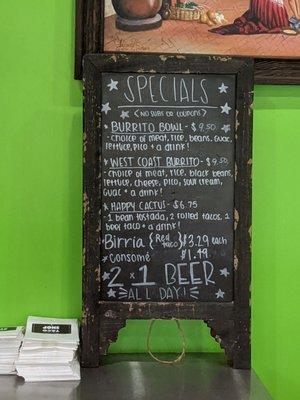 SPECIALS
(NO SUBS OR COUPONS)
BURRITO BOWL - $9.50
- choice of meat, rice, beans, guac,
lettuce, pico + a drink!
WEST COAST BURRITO - $9.50
- choice of meat, rice, black beans,
lettuce, cheese, pico, sour cream,
guac + a drink!
HAPPY CACTUS - $6.75
- 1 bean tostada, 2 rolled tacos, 2
beef taco + a drink!
Birria {Red taco} $3.29 each
Consomé $1.49
2 x 1 BEER
ALL DAY!
TACO
SHOP